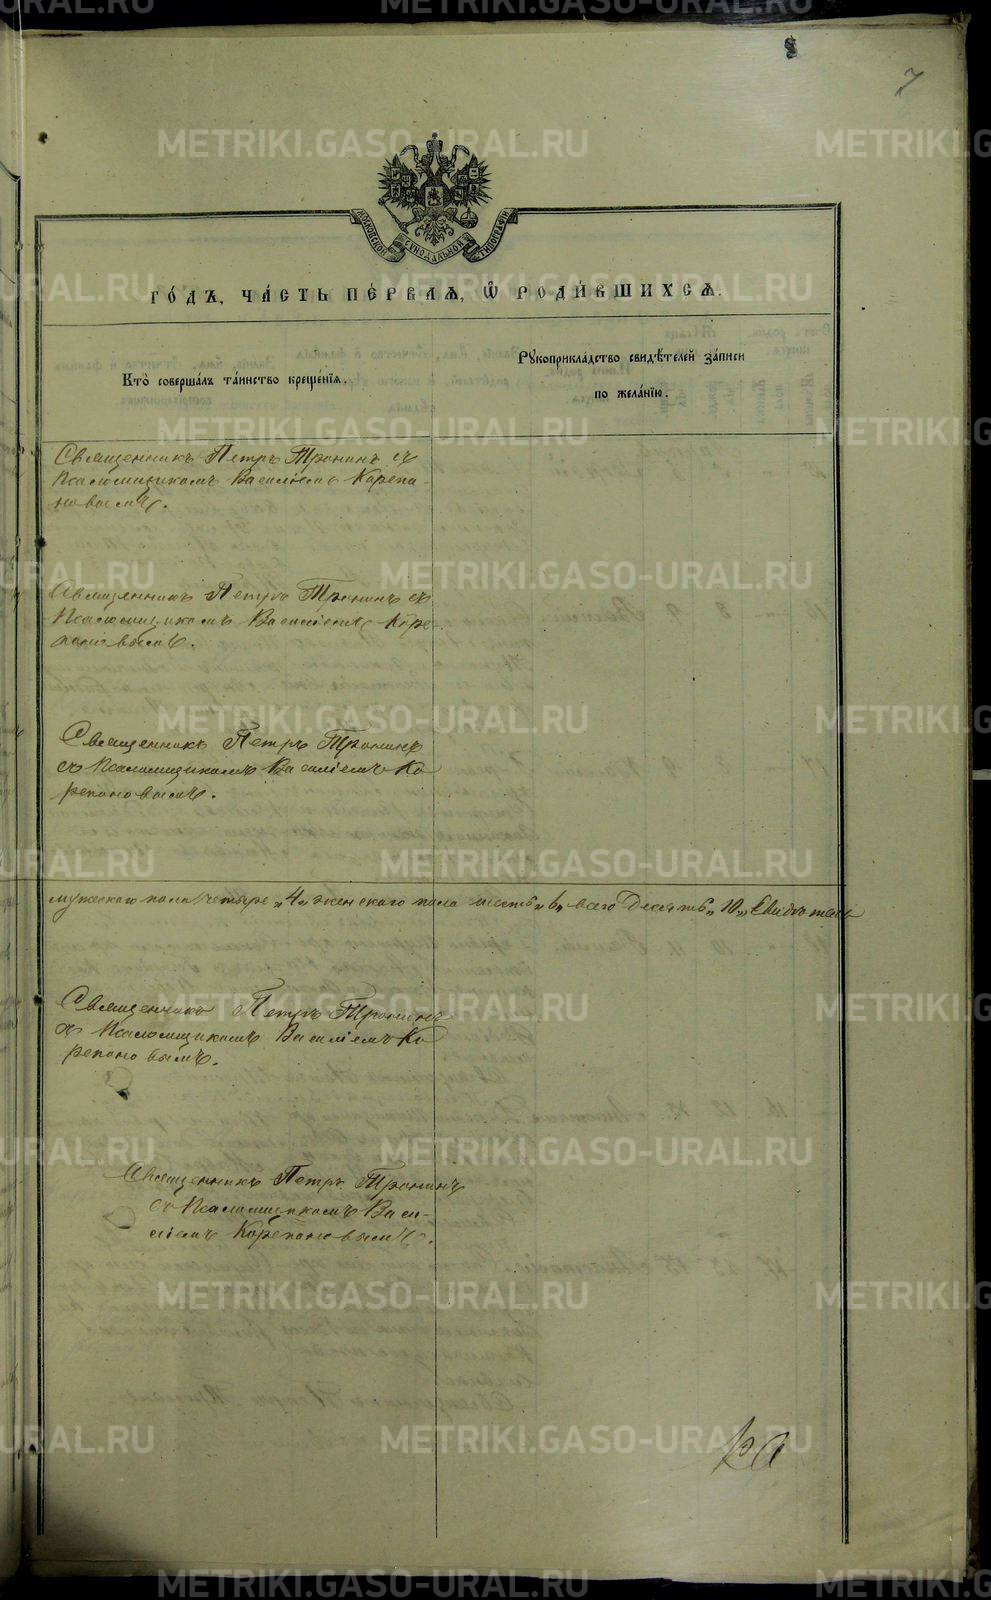 8
7
МОСКОВСКОЙ СѴНОДАЛЬНОЙ ТИПОГРАФІИ
ГО́ДЪ, ЧА́СТЬ ПЕ́РВАѦ, Ѡ҆ РОДИ́ВШИХСѦ.
Кто̀ соверша́лъ та́инство креще́нїѧ.
Рꙋкоприкла́дство свидѣ́телей за́писи
по жела́нїю.
Священникъ Петръ Тронинъ съ
Псаломщикомъ Василіемъ Корепа-
новымъ.
Священникъ Петръ Тронинъ съ
Псаломщикомъ Василіемъ Коре-
пановымъ.
Священникъ Петръ Тронинъ
съ Псаломщикомъ Василіемъ Ко
репановымъ.
мужескаго пола четыре „4„ женскаго пола шесть „6„ всего Десять „10„
Священникъ Петръ Тронинъ
съ Псаломщикомъ Василіемъ Ко
репановымъ.
Священникъ Петръ Тронинъ
съ Псаломщикомъ Васи-
ліемъ Корепановымъ.
METRIKI.GASO-URAL.RU